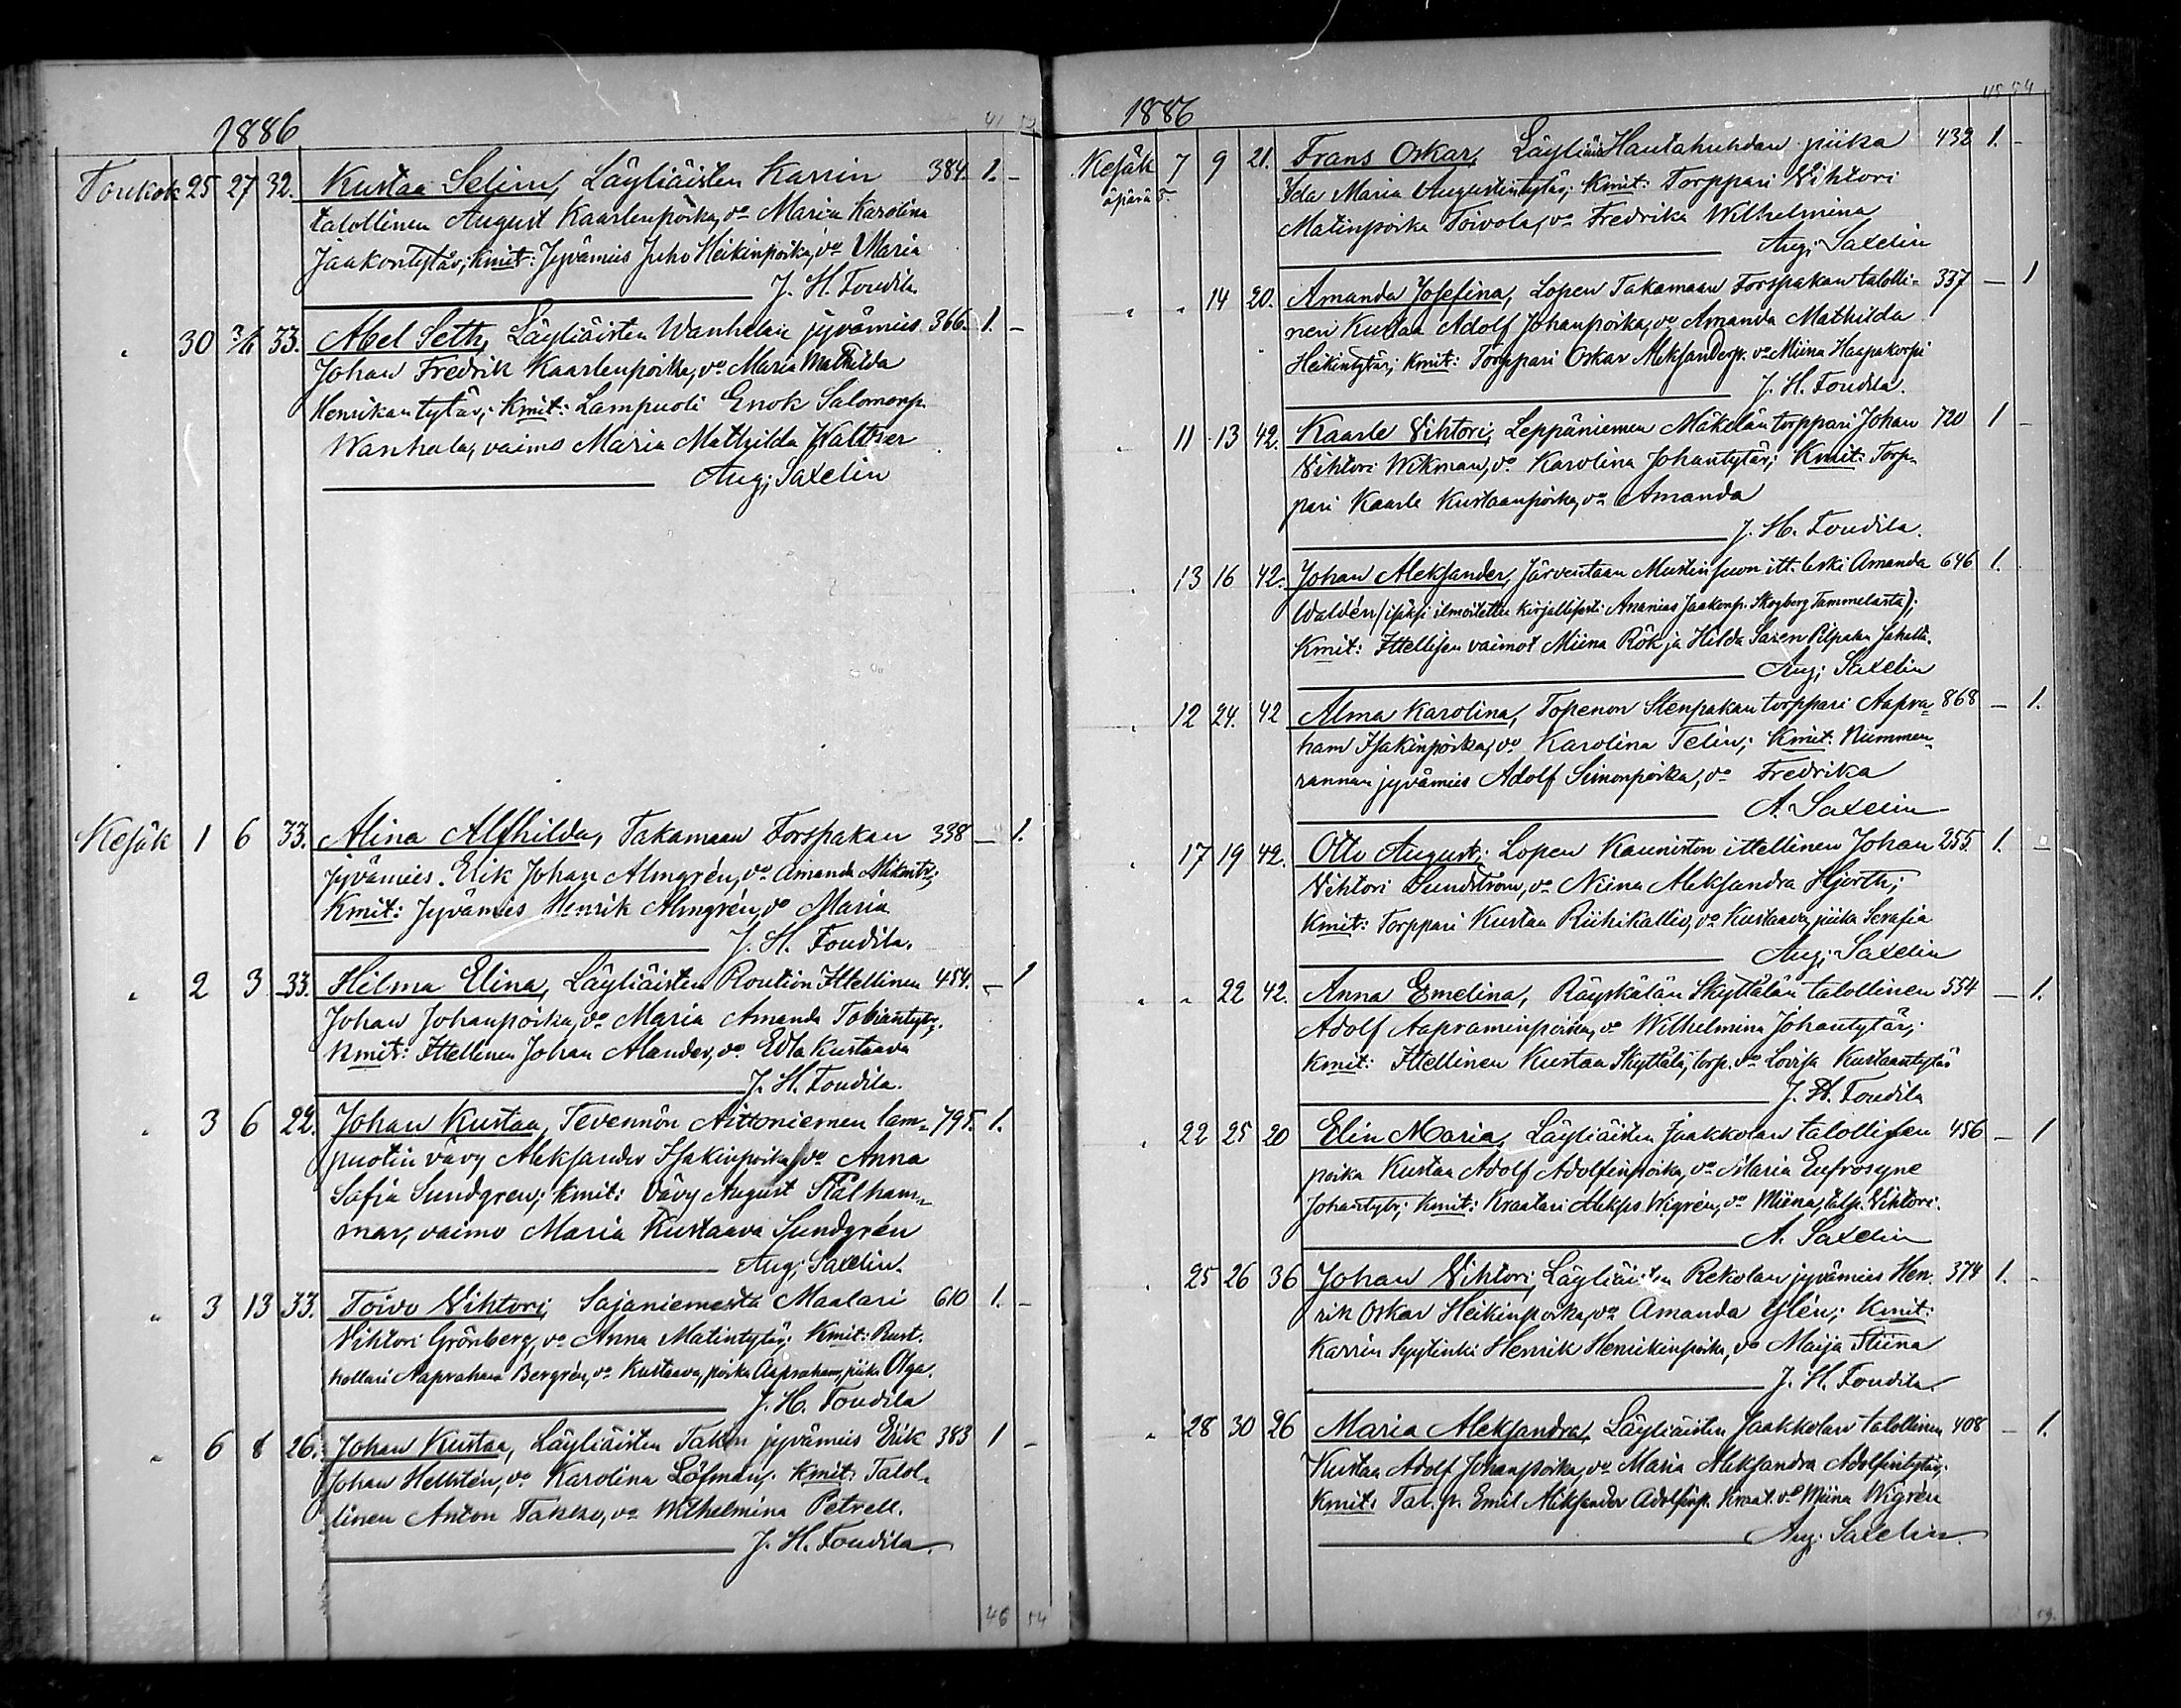 1886
41 52
Toukok 25 27 32. Kustaa Selim, Läyliäisten Karrin 384. 1. -
talollinen August Kaarlenpoika, vo Maria Karolina
Jaakontytär; Kmit: Jyvämies Juho Heikinpoika, vo Maria
J. H. Toudila.
" 30 3/6 33. Abel Seth, Läyliäisten Wanhalan jyvämies 366. 1. -
Johan Fredrik Kaarlenpoika, vo Maria Mathilda
Henrikantytär; Kmit: Lampuoti Enok Salomonp.
Wanhala, vaimo Maria Mathilda Walther
Aug; Saxelin
Kesäk 1 6 33. Alina Alfhilda, Takamaan Forspakan 338 - 1.
jyvämies. Erik Johan Almgrén, vo Amanda Mikontr;
Kmit: Jyvämies Henrik Almgrén, vo Maria
J. H. Toudila.
" 2 3 33. Hilma Elina, Läyliäisten Roution Ittellinen 454. - 1
Johan Johanpoika, vo Maria Amanda Tobiantytr.
Kmit: Ittellinen Johan Alander, vo Edla Kustaava
J. H. Toudila.
" 3 6 22. Johan Kustaa, Tevennön Aittoniemen lam= 795. 1.
puotin vävy Aleksander Isakinpoika, vo Anna
Safia Sundgren; Kmit: Vävy August Stålham=
mar, vaimo Maria Kustaava Sundgrén
Aug; Saxelin.
" 3 13 33. Toivo Vihtori; Sajaniemestä Maalari 610 1. -
Vihtori Grönberg, vo Anna Matintytär; Kmit: Rust.
hollari Aapraham Bergrén, vo Kustaava, poika Aapraham, piika Olga.
J. H. Toudila
" 6 8 26. Johan Kustaa, Läyliäisten Takon jyvämies Erik 383 1 -
Johan Hellstén, vo Karolina Löfman; Kmit: Talol.
linen Anton Takko, vo Wilhelmina Petrell.
J. H. Toudila.
46 54
1886
45 54
Kesäk 7 9 21. Frans Oskar, Läyliäis Hautahuhdan piika 432 1. -
äpärä 5. Ida Maria Augustintytär; Kmit: Torppari Vihtori
Matinpoika Toivola, vo Fredrika Wilhelmina
Aug; Saxelin
" " 14 20. Amanda Josefina, Lopen Takamaan Forspakan talolli= 337 - 1
nen Kustaa Adolf Johanpoika, vo Amanda Mathilda
Heikintytär; Kmit: Torppari Oskar Aleksanderp. vo Miina Haapakorpi
J. H. Toudila.
" 11 13 42. Kaarle Vihtori; Leppäniemen Mäkelän torppari Johan 720 1 -
Vihtori Wikman, vo Karolina Johantytär; Kmit: Torp=
pari Kaarle Kustaanpoika, vo Amanda
J. H. Toudila.
" 13 16 42. Johan Aleksander, Järventaan Mustinsuon itt. leski Amanda 646 1.
Waldén (isäksi ilmoitettu kirjallisesti Ananias Jaakonp. Skogberg Tammelasta);
Kmit: Ittellisen vaimot Miina Rök ja Hilda Saxen Pilpalan
Aug; Saxelin
" 12 24. 42 Alma Karolina, Topenon Stenpakan torppari Aapra= 868 - 1.
ham Isakinpoika, vo Karolina Telin; Kmit: Nummen=
rannan jyvämies Adolf Simonpoika, vo Fredrika
A. Saxelin
" 17 19 42. Otto August; Lopen Kauniston ittellinen Johan 255. 1. -
Vihtori Sundström, vo Niina Aleksandra Hjorth;
Kmit: Torppari Kustaa Riihikallio, vo Kustaava, piika Serafia
Aug; Saxelin
" " 22 42. Anna Emelina, Räyskälän Skyttälän talollinen 554 - 1.
Adolf Aapraminpoika, vo Wilhelmina Johantytär;
Kmit: Ittellinen Kustaa Skyttälä, torp. vo Lovisa Kustaantytär
J. H. Toudila
" 22 25 20 Elin Maria, Läyliäisten Jaakkolan talollisen 456 - 1
poika Kustaa Adolf Adolfinpoika, vo Maria Eufrosyne
Johantytr; Kmit: Kraatari Aleks Wigrén, vo Miina, talp. Vihtori.
A. Saxelin
" 25 26 36 Johan Vihtori, Läyliäisten Rekolan jyvämies Hen. 374 1. -
rik Oskar Heikinpoika, vo Amanda Glén; Kmit:
Karrin Syytinki Henrik Henrikinpoika, vo Maija Stiina
J. H. Toudila.
" 28 30 26 Maria Aleksandra, Läyliäisten Jaakkolan talollinen 408 - 1.
Kustaa Adolf Johanpoika, vo Maria Aleksandra Adolfintytär;
Kmit: Tal. p. Emil Aleksander Adolfinp. Kraat. vo Miina Wigrén
Aug. Saxelin.
59.